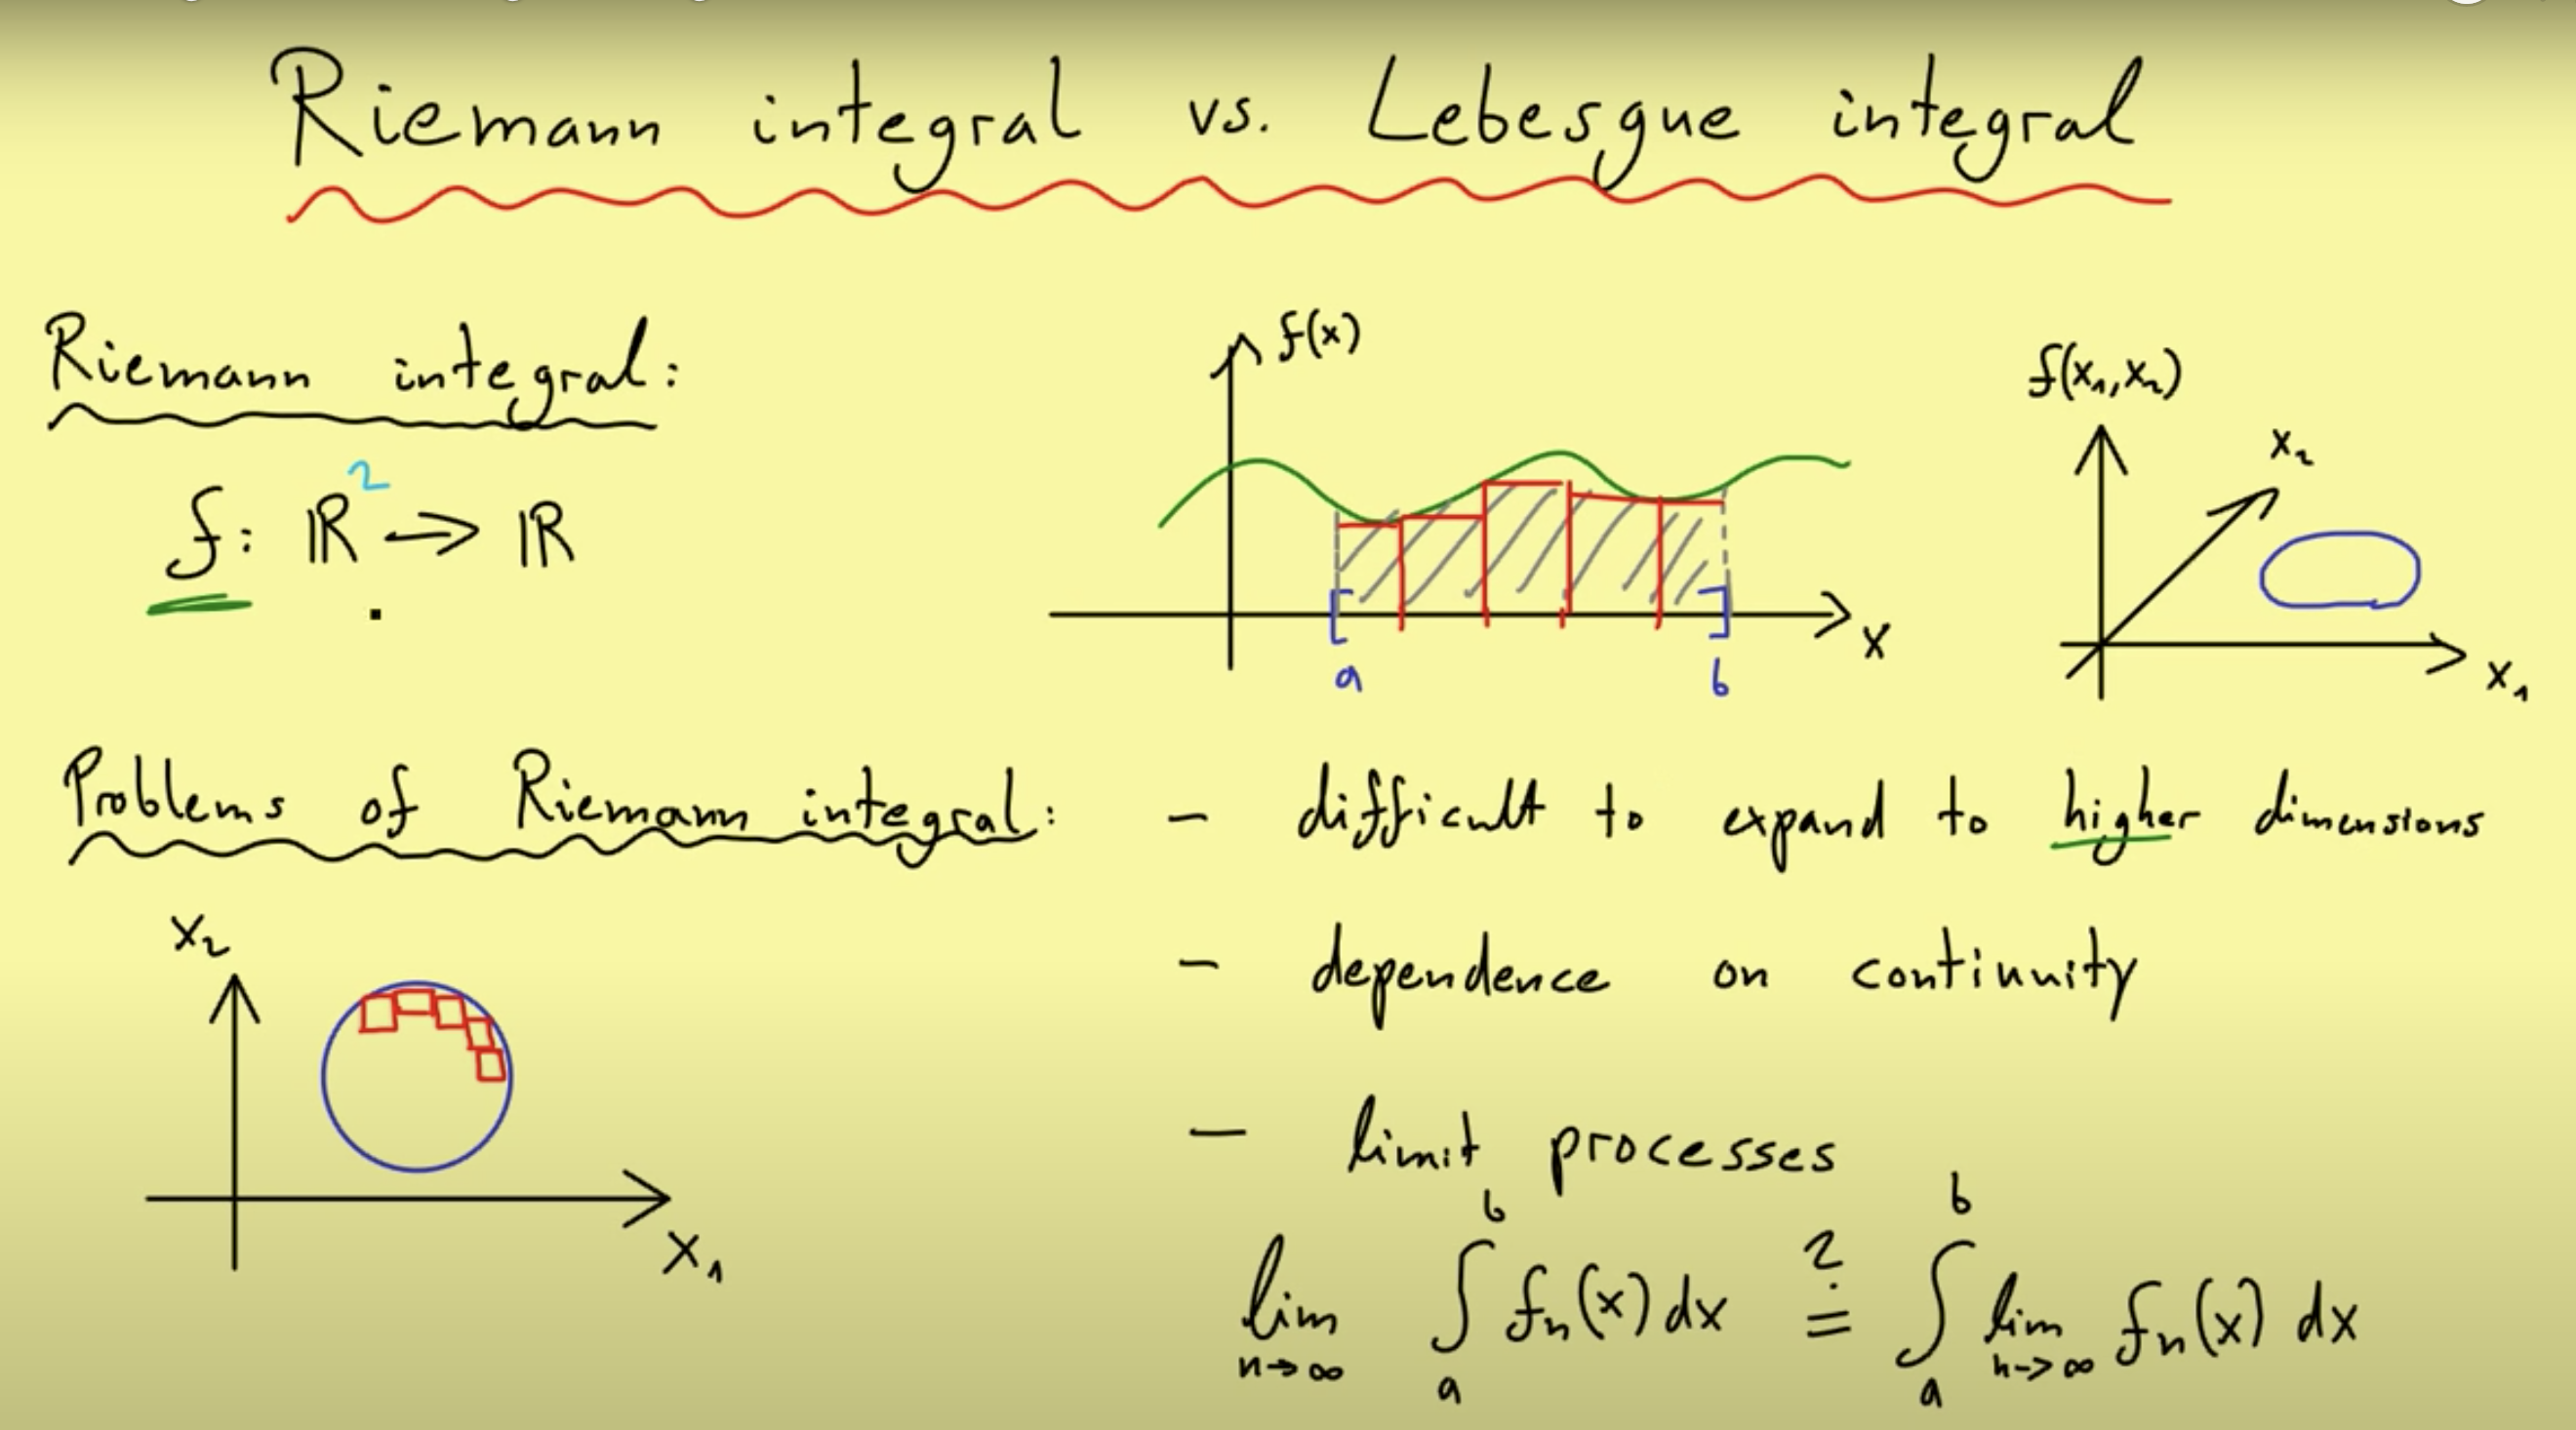 Riemann integral vs. Lebesgue integral
Riemann integral:
f: ℝ² → ℝ
f(x)
x
a
b
f(x₁,x₂)
x₂
x₁
Problems of Riemann integral:
- difficult to expand to higher dimensions
- dependence on continuity
- limit processes
lim n→∞ ∫ₐᵇ fₙ(x) dx ≟ ∫ₐᵇ lim n→∞ fₙ(x) dx
x₂
x₁